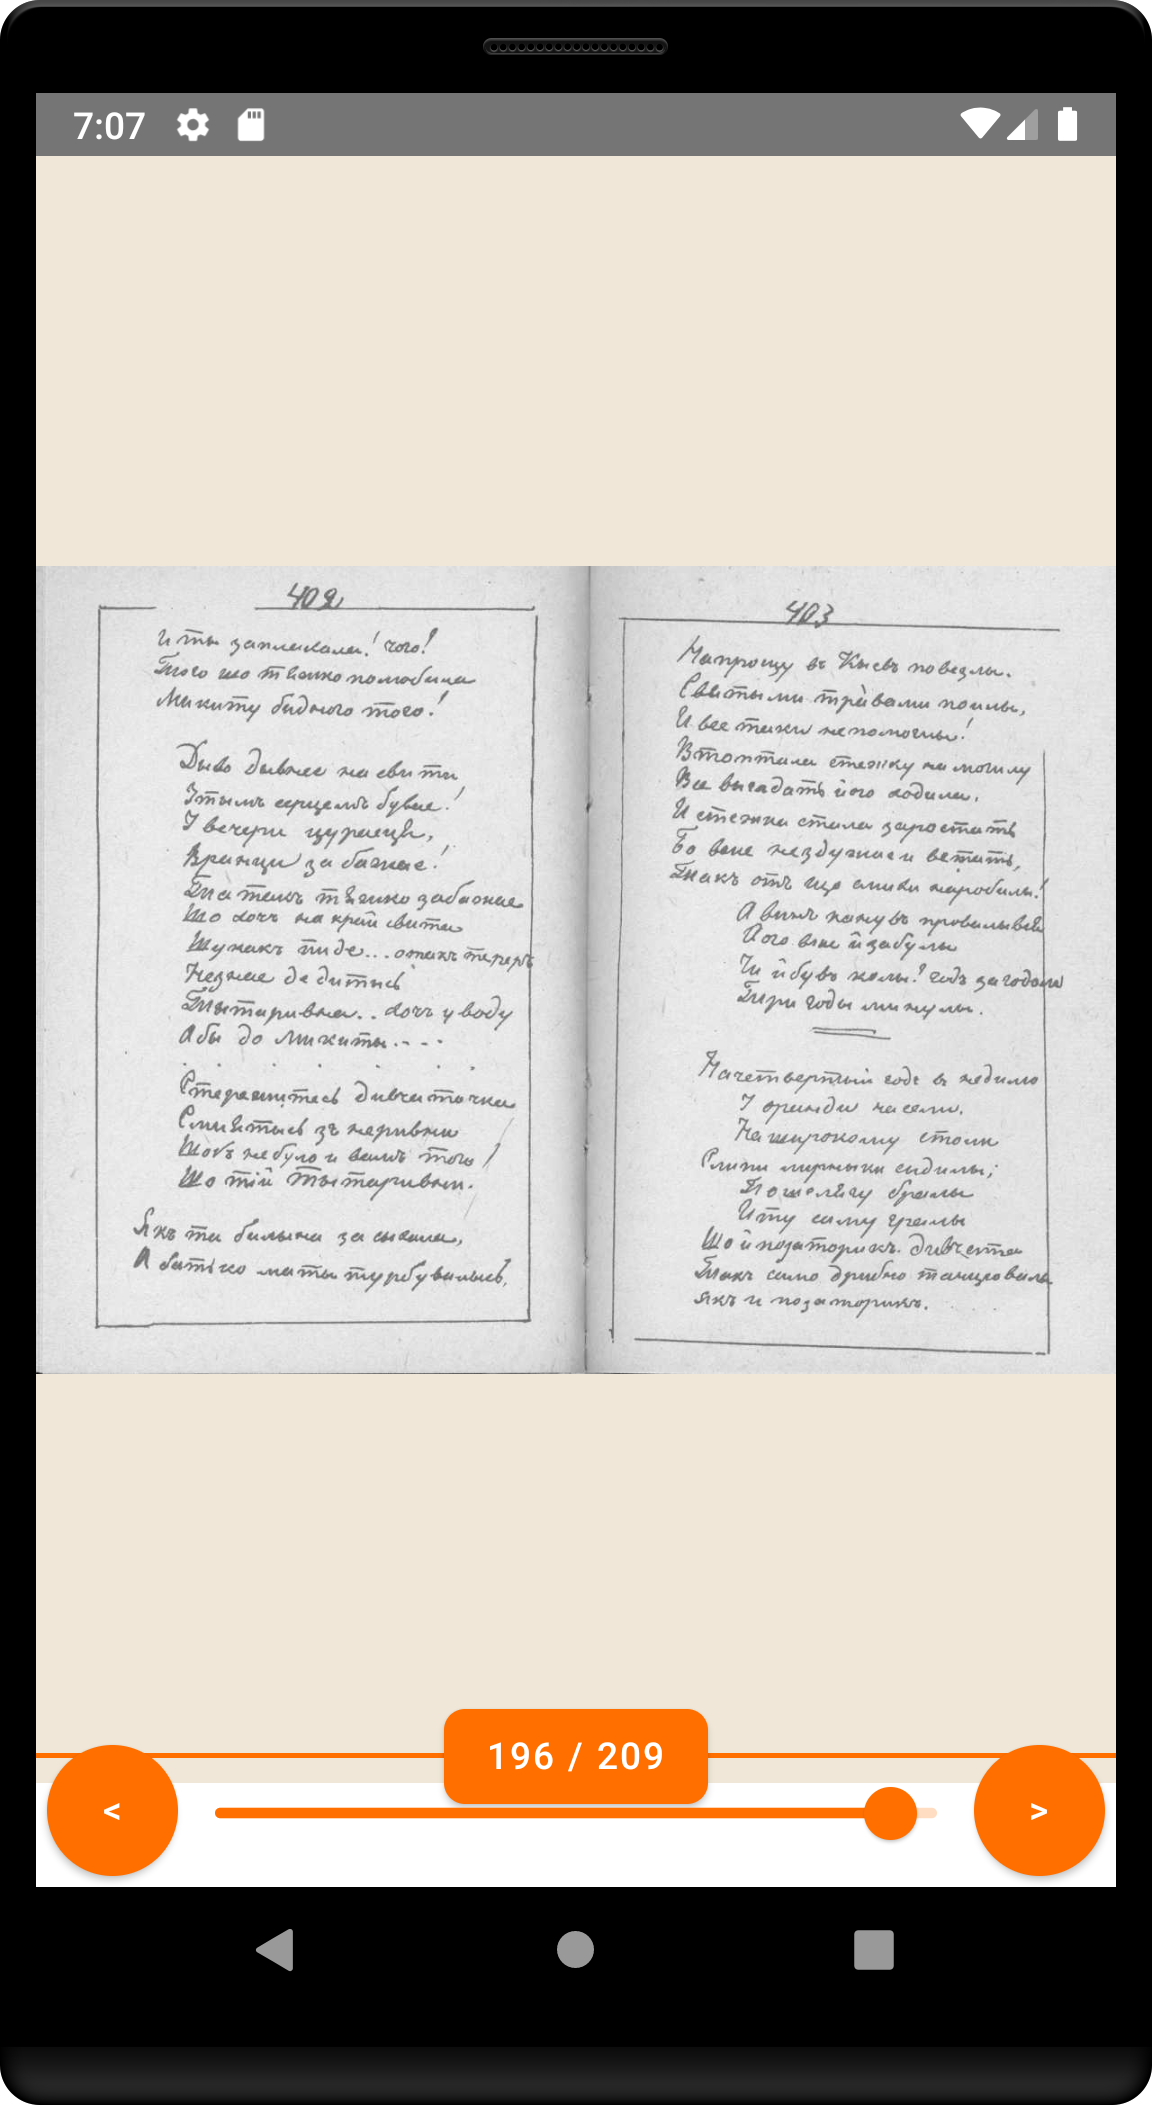 7:07
402
И ты заплакала! чого?
Того що тяжко полюбила
Микиту бидного того!
Дыво дывнее на свити
Зтымъ серцемъ бувае!
Звечери цураеця,
Вранци забажае!
Та такъ тяжко забажае
Шо хочь на край свита
Шукать пиде... отакъ теперь
Незнае де дитысь
Тытаривна.. хочъ у воду
Абы до Микиты....
Стережитесь дивчаточка
Смиятысь зъ неривни
Шобъ небуло и вамъ того!
Шо тій Тытаривни.
Якъ та былына засыхала,
А батько маты турбувалысь,
403
На прощу въ Кыевъ повезлы.
Святыми травами поилы,
И все таки непомоглы!
Втоптала стежку на могилу
Все выгядать його ходила.
И стежка стала заростать
Бо вже нездужае и встать,
Такъ отъ що смихи наробылы!
А винъ канувъ провалывся
Його вже й забулы
Чи й бувъ колы? годъ за годомъ
Три годы минулы.
На четвертый годъ в недилю
У оранди на сели.
На широкому столи
Слипи лирныки сидилы;
По шелягу бралы
И ту саму гралы
Шо й позаторикъ. Дивчата
Такъ само дрибно танцювалы
Якъ и позаторикъ.
196 / 209
< >